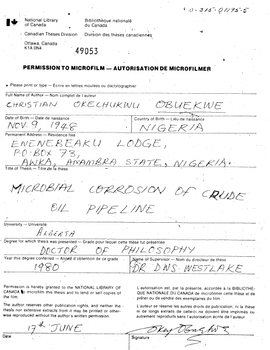 0-315-01195-5
National Library of Canada
Bibliothèque nationale du Canada
Canadian Theses Division
Division des thèses canadiennes
Ottawa, Canada
K1A 0N4
49053
PERMISSION TO MICROFILM — AUTORISATION DE MICROFILMER
• Please print or type — Écrire en lettres moulées ou dactylographier
Full Name of Author — Nom complet de l'auteur
CHRISTIAN OKECHUKWU OBUEKWE
Date of Birth — Date de naissance
Country of Birth — Lieu de naissance
NOV. 9, 1948
NIGERIA
Permanent Address — Résidence fixe
ENENEBEAKU LODGE,
PO BOX 73,
AWKA, ANAMBRA STATE, NIGERIA.
Title of Thesis — Titre de la thèse
MICROBIAL CORROSION OF CRUDE
OIL PIPELINE
University — Université
ALBERTA
Degree for which thesis was presented — Grade pour lequel cette thèse fut présentée
DOCTOR OF PHILOSOPHY
Year this degree conferred — Année d'obtention de ce grade
Name of Supervisor — Nom du directeur de thèse
1980
DR D.N.S. WESTLAKE
Permission is hereby granted to the NATIONAL LIBRARY OF CANADA to microfilm this thesis and to lend or sell copies of the film.
L'autorisation est, par la présente, accordée à la BIBLIOTHÈQUE NATIONALE DU CANADA de microfilmer cette thèse et de prêter ou de vendre des exemplaires du film.
The author reserves other publication rights, and neither the thesis nor extensive extracts from it may be printed or otherwise reproduced without the author's written permission.
L'auteur se réserve les autres droits de publication; ni la thèse ni de longs extraits de celle-ci ne doivent être imprimés ou autrement reproduits sans l'autorisation écrite de l'auteur.
Date
17th JUNE
Signature